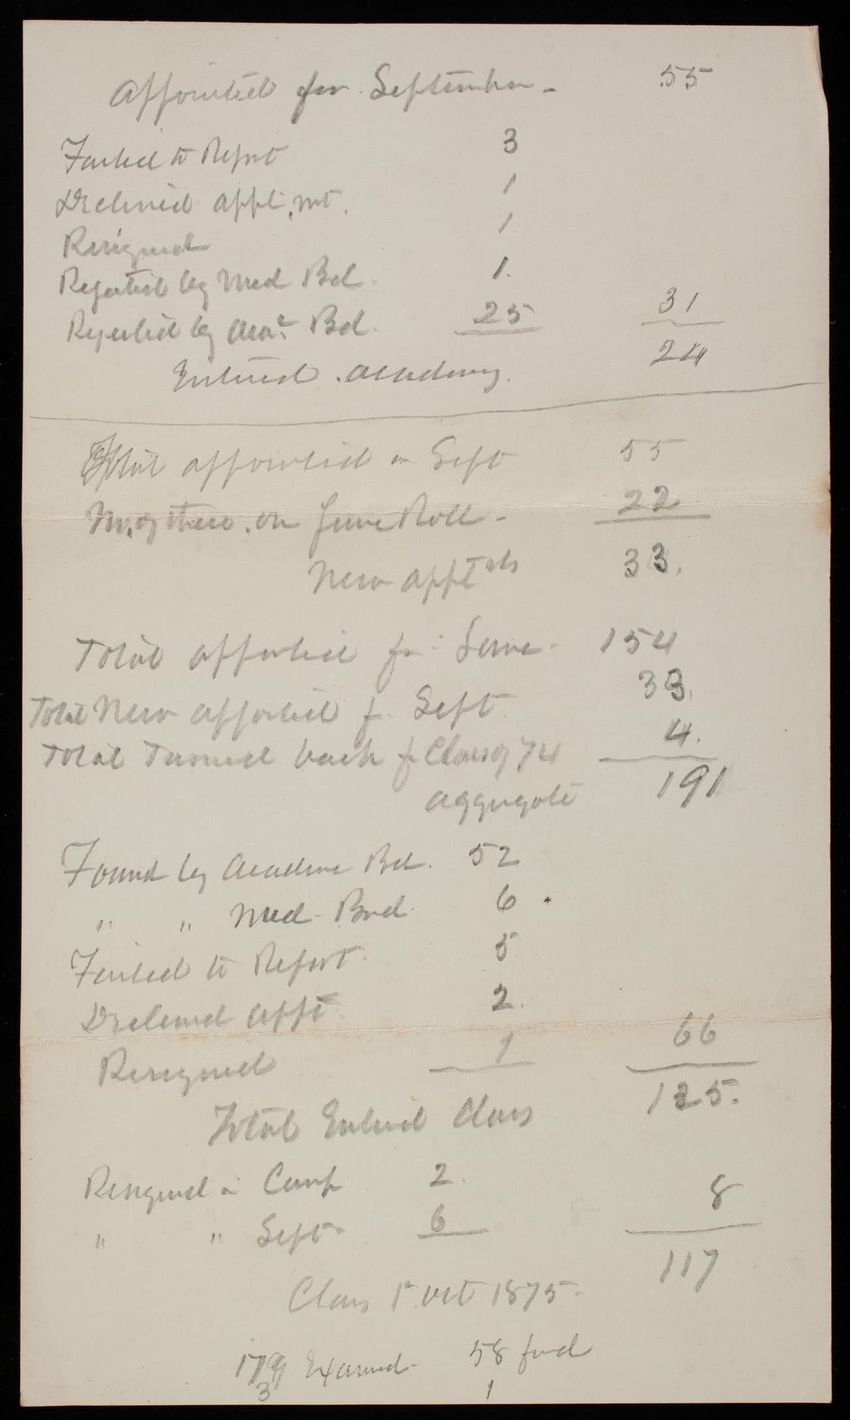 Appointed for September - 55
Failed to Report 3
Declined appt.mt. 1
Resigned 1
Rejected by Med Bd. 1.
Rejected by Aca.c Bd. 25 31
Entered Academy. 24
Total appointed in Sept 55
No. of these on June Roll - 22
New apptmts 33.
Total appointed for June - 154
Total New appointed f. Sept 33.
Total Turned back f Class of 74 4.
aggregate 191
Found by Academic Bd. 52
" " Med. Brd. 6
Failed to Report. 5
Declined appt. 2.
Resigned 1 66
Total Entered Class 125.
Resigned in Camp 2. 8
" " Sept- 6
117
Class 1st Oct 1875.
179 Examd- 58 fnd
3 1